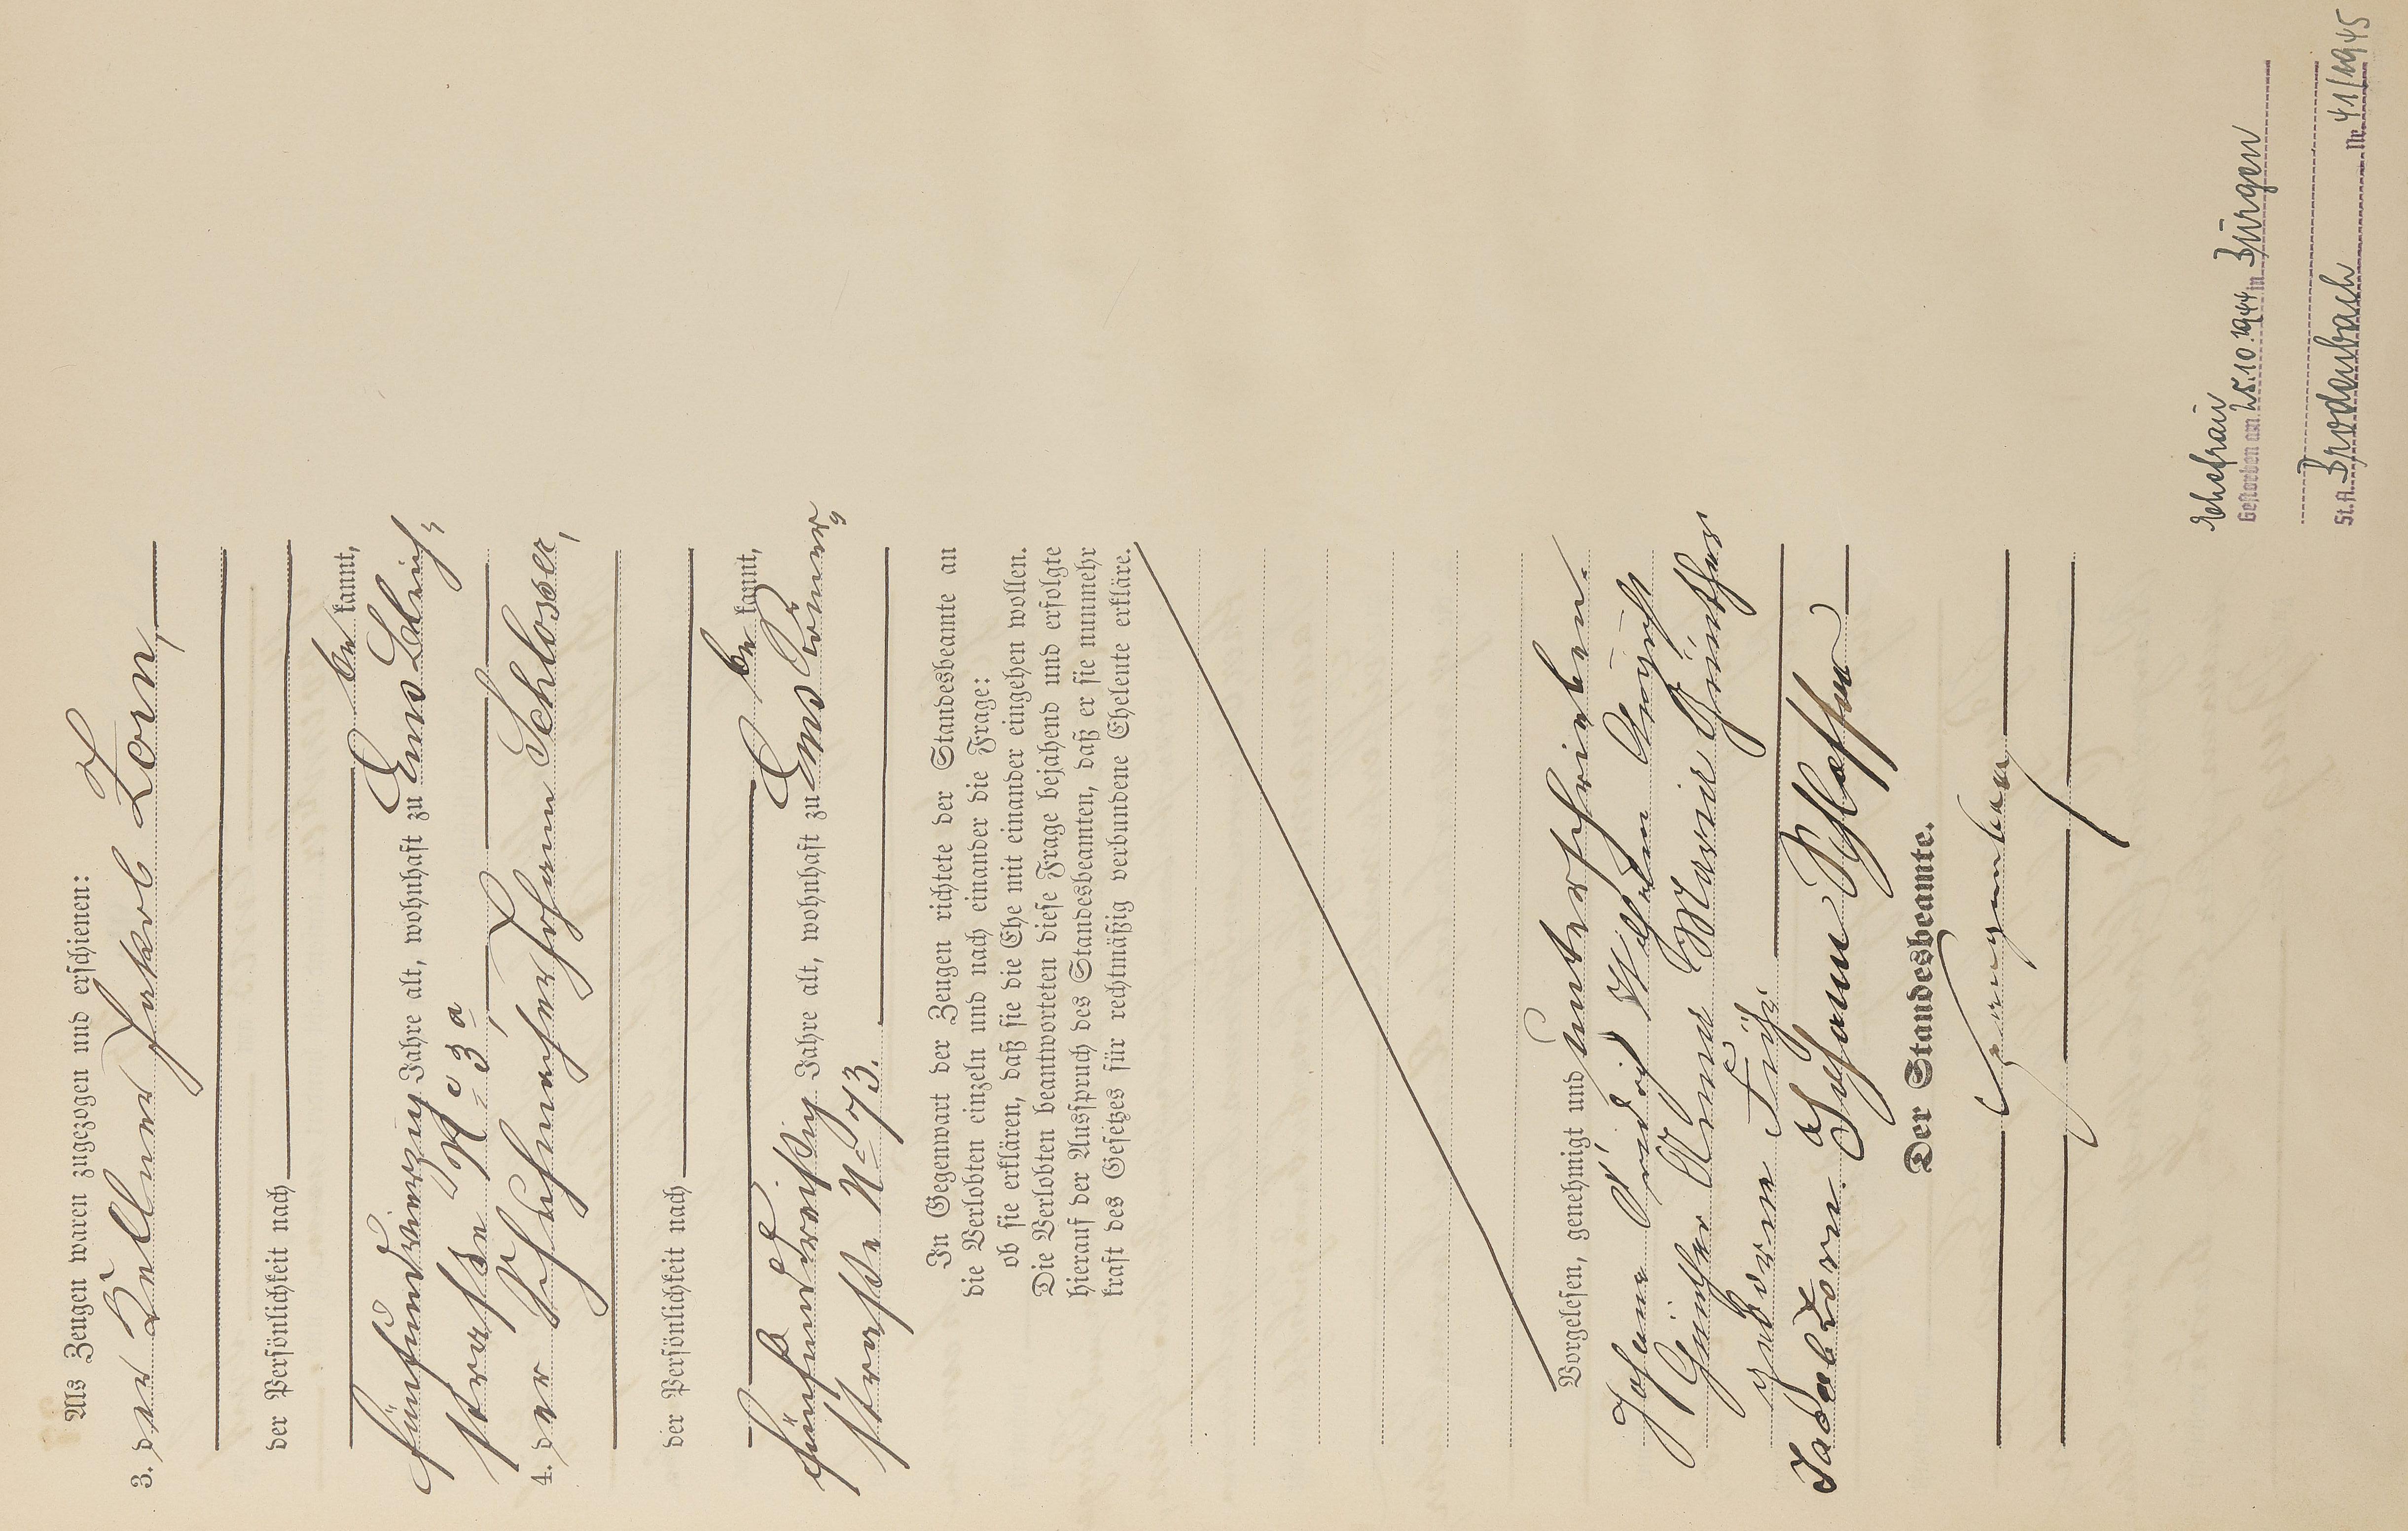 Als Zeugen waren zugezogen und erschienen:
3. der Kellner Jakob Zorn,
der Persönlichkeit nach
be kannt,
fünfundvierzig Jahre alt, wohnhaft zu Ems
straße No 3 a,
4. der Schuhmacher Johann Schlosser,
der Persönlichkeit nach
be kannt,
fünfunddreißig Jahre alt, wohnhaft zu Ems Römer=
straße No 73.
In Gegenwart der Zeugen richtete der Standesbeamte an
die Verlobten einzeln und nach einander die Frage:
ob sie erklären, daß sie die Ehe mit einander eingehen wollen.
Die Verlobten beantworteten diese Frage bejahend und erfolgte
hierauf der Ausspruch des Standesbeamten, daß er sie nunmehr
kraft des Gesetzes für rechtmäßig verbundene Eheleute erkläre.
Vorgelesen, genehmigt und unterschrieben.
Johann Wilhelm August
Günther Anna Maria Günther
geborne
Jacob Zorn. Johann Schlosser
Der Standesbeamte.
Ehefrau
Gestorben am 25.10.1944 in Burgen
St. A. Brodenbach Nr. 41/1945